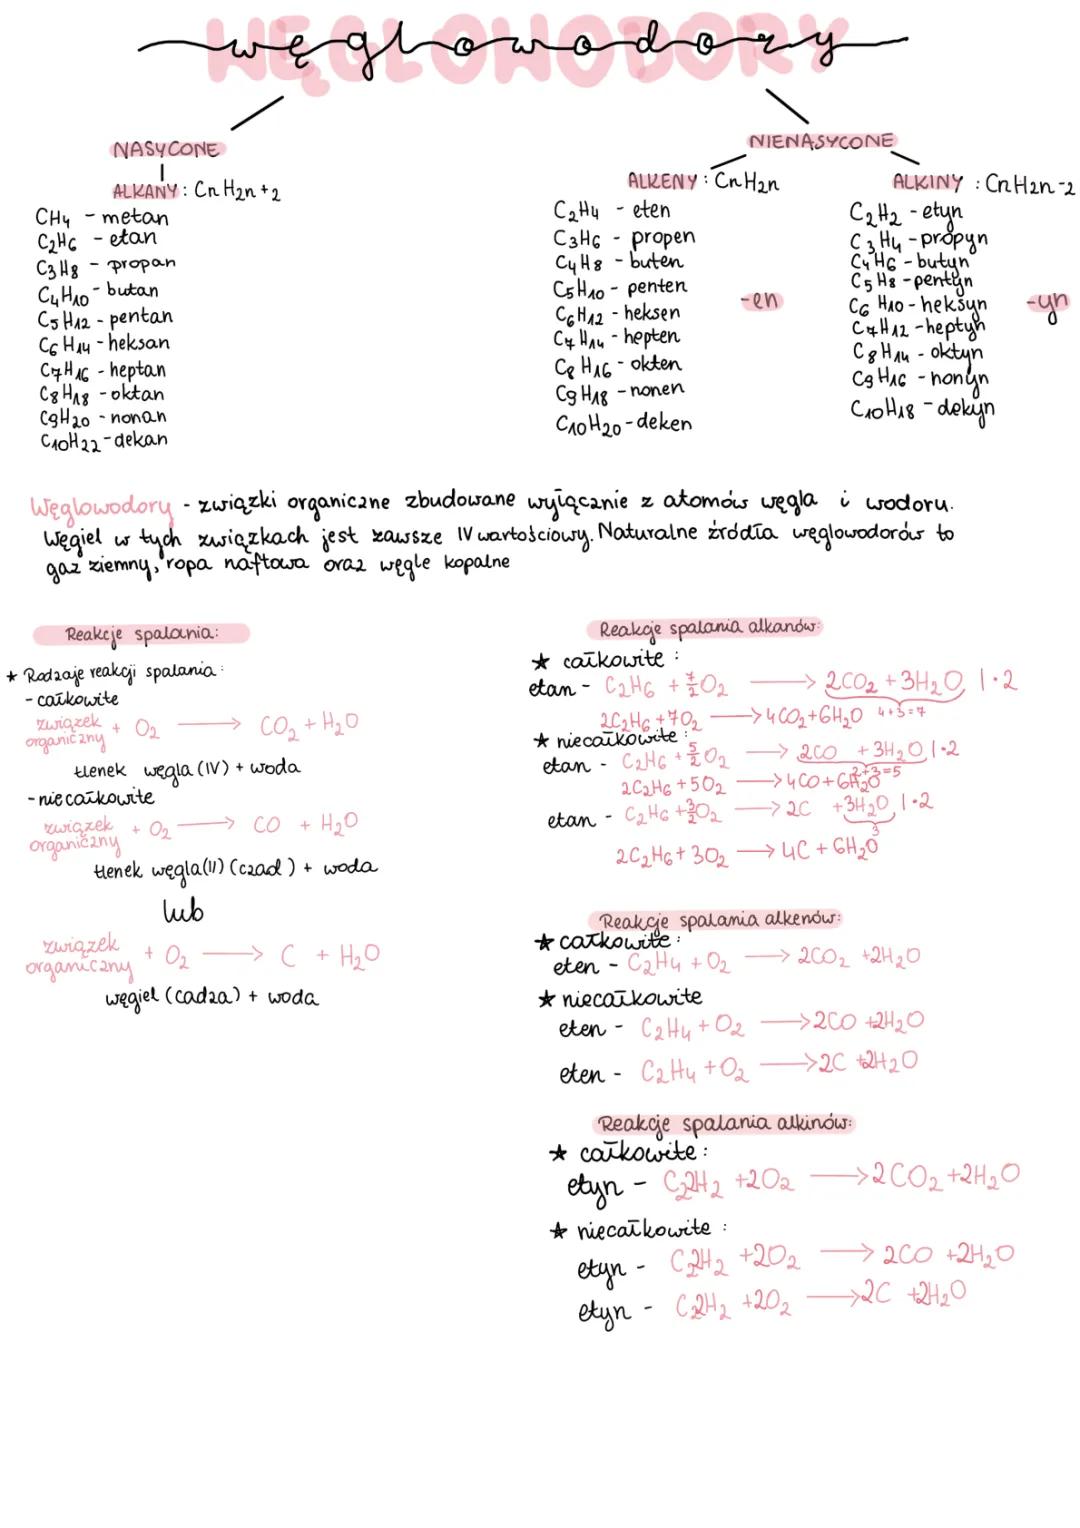 węglowodory
WĘGLOWODORY
NASYCONE
ALKANY : CnH2n+2
CH4 - metan
C2H6 - etan
C3H8 - propan
C4H10 - butan
C5H12 - pentan
C6H14 - heksan
C7H16 - heptan
C8H18 - oktan
C9H20 - nonan
C10H22 - dekan
NIENASYCONE
ALKENY : CnH2n
C2H4 - eten
C3H6 - propen
C4H8 - buten
C5H10 - penten
C6H12 - heksen
C7H14 - hepten
C8H16 - okten
C9H18 - nonen
C10H20 - deken
-en
ALKINY : CnH2n-2
C2H2 - etyn
C3H4 - propyn
C4H6 - butyn
C5H8 - pentyn
C6H10 - heksyn
C7H12 - heptyn
C8H14 - oktyn
C9H16 - nonyn
C10H18 - dekyn
-yn
Węglowodory - związki organiczne zbudowane wyłącznie z atomów węgla i wodoru.
Węgiel w tych związkach jest zawsze IV wartościowy. Naturalne źródła węglowodorów to
gaz ziemny, ropa naftowa oraz węgle kopalne
Reakcje spalania:
* Rodzaje reakcji spalania:
- całkowite
związek organiczny + O2 → CO2 + H2O
tlenek węgla (IV) + woda
- niecałkowite
związek organiczny + O2 → CO + H2O
tlenek węgla(II) (czad) + woda
lub
związek organiczny + O2 → C + H2O
węgiel (cadza) + woda
Reakcje spalania alkanów:
★ całkowite :
etan - C2H6 + 7/2 O2 → 2CO2 + 3H2O | ·2
4+3=7
2C2H6 + 7O2 → 4CO2 + 6H2O
★ niecałkowite :
etan - C2H6 + 5/2 O2 → 2CO + 3H2O | ·2
2+3=5
2C2H6 + 5O2 → 4CO + 6H2O
etan - C2H6 + 3/2 O2 → 2C + 3H2O | ·2
3
2C2H6 + 3O2 → 4C + 6H2O
Reakcje spalania alkenów:
★ całkowite :
eten - C2H4 + O2 → 2CO2 + 2H2O
★ niecałkowite
eten - C2H4 + O2 → 2CO + 2H2O
eten - C2H4 + O2 → 2C + 2H2O
Reakcje spalania alkinów:
★ całkowite :
etyn - C2H2 + 2O2 → 2CO2 + 2H2O
★ niecałkowite :
etyn - C2H2 + 2O2 → 2CO + 2H2O
etyn - C2H2 + 2O2 → 2C + 2H2O